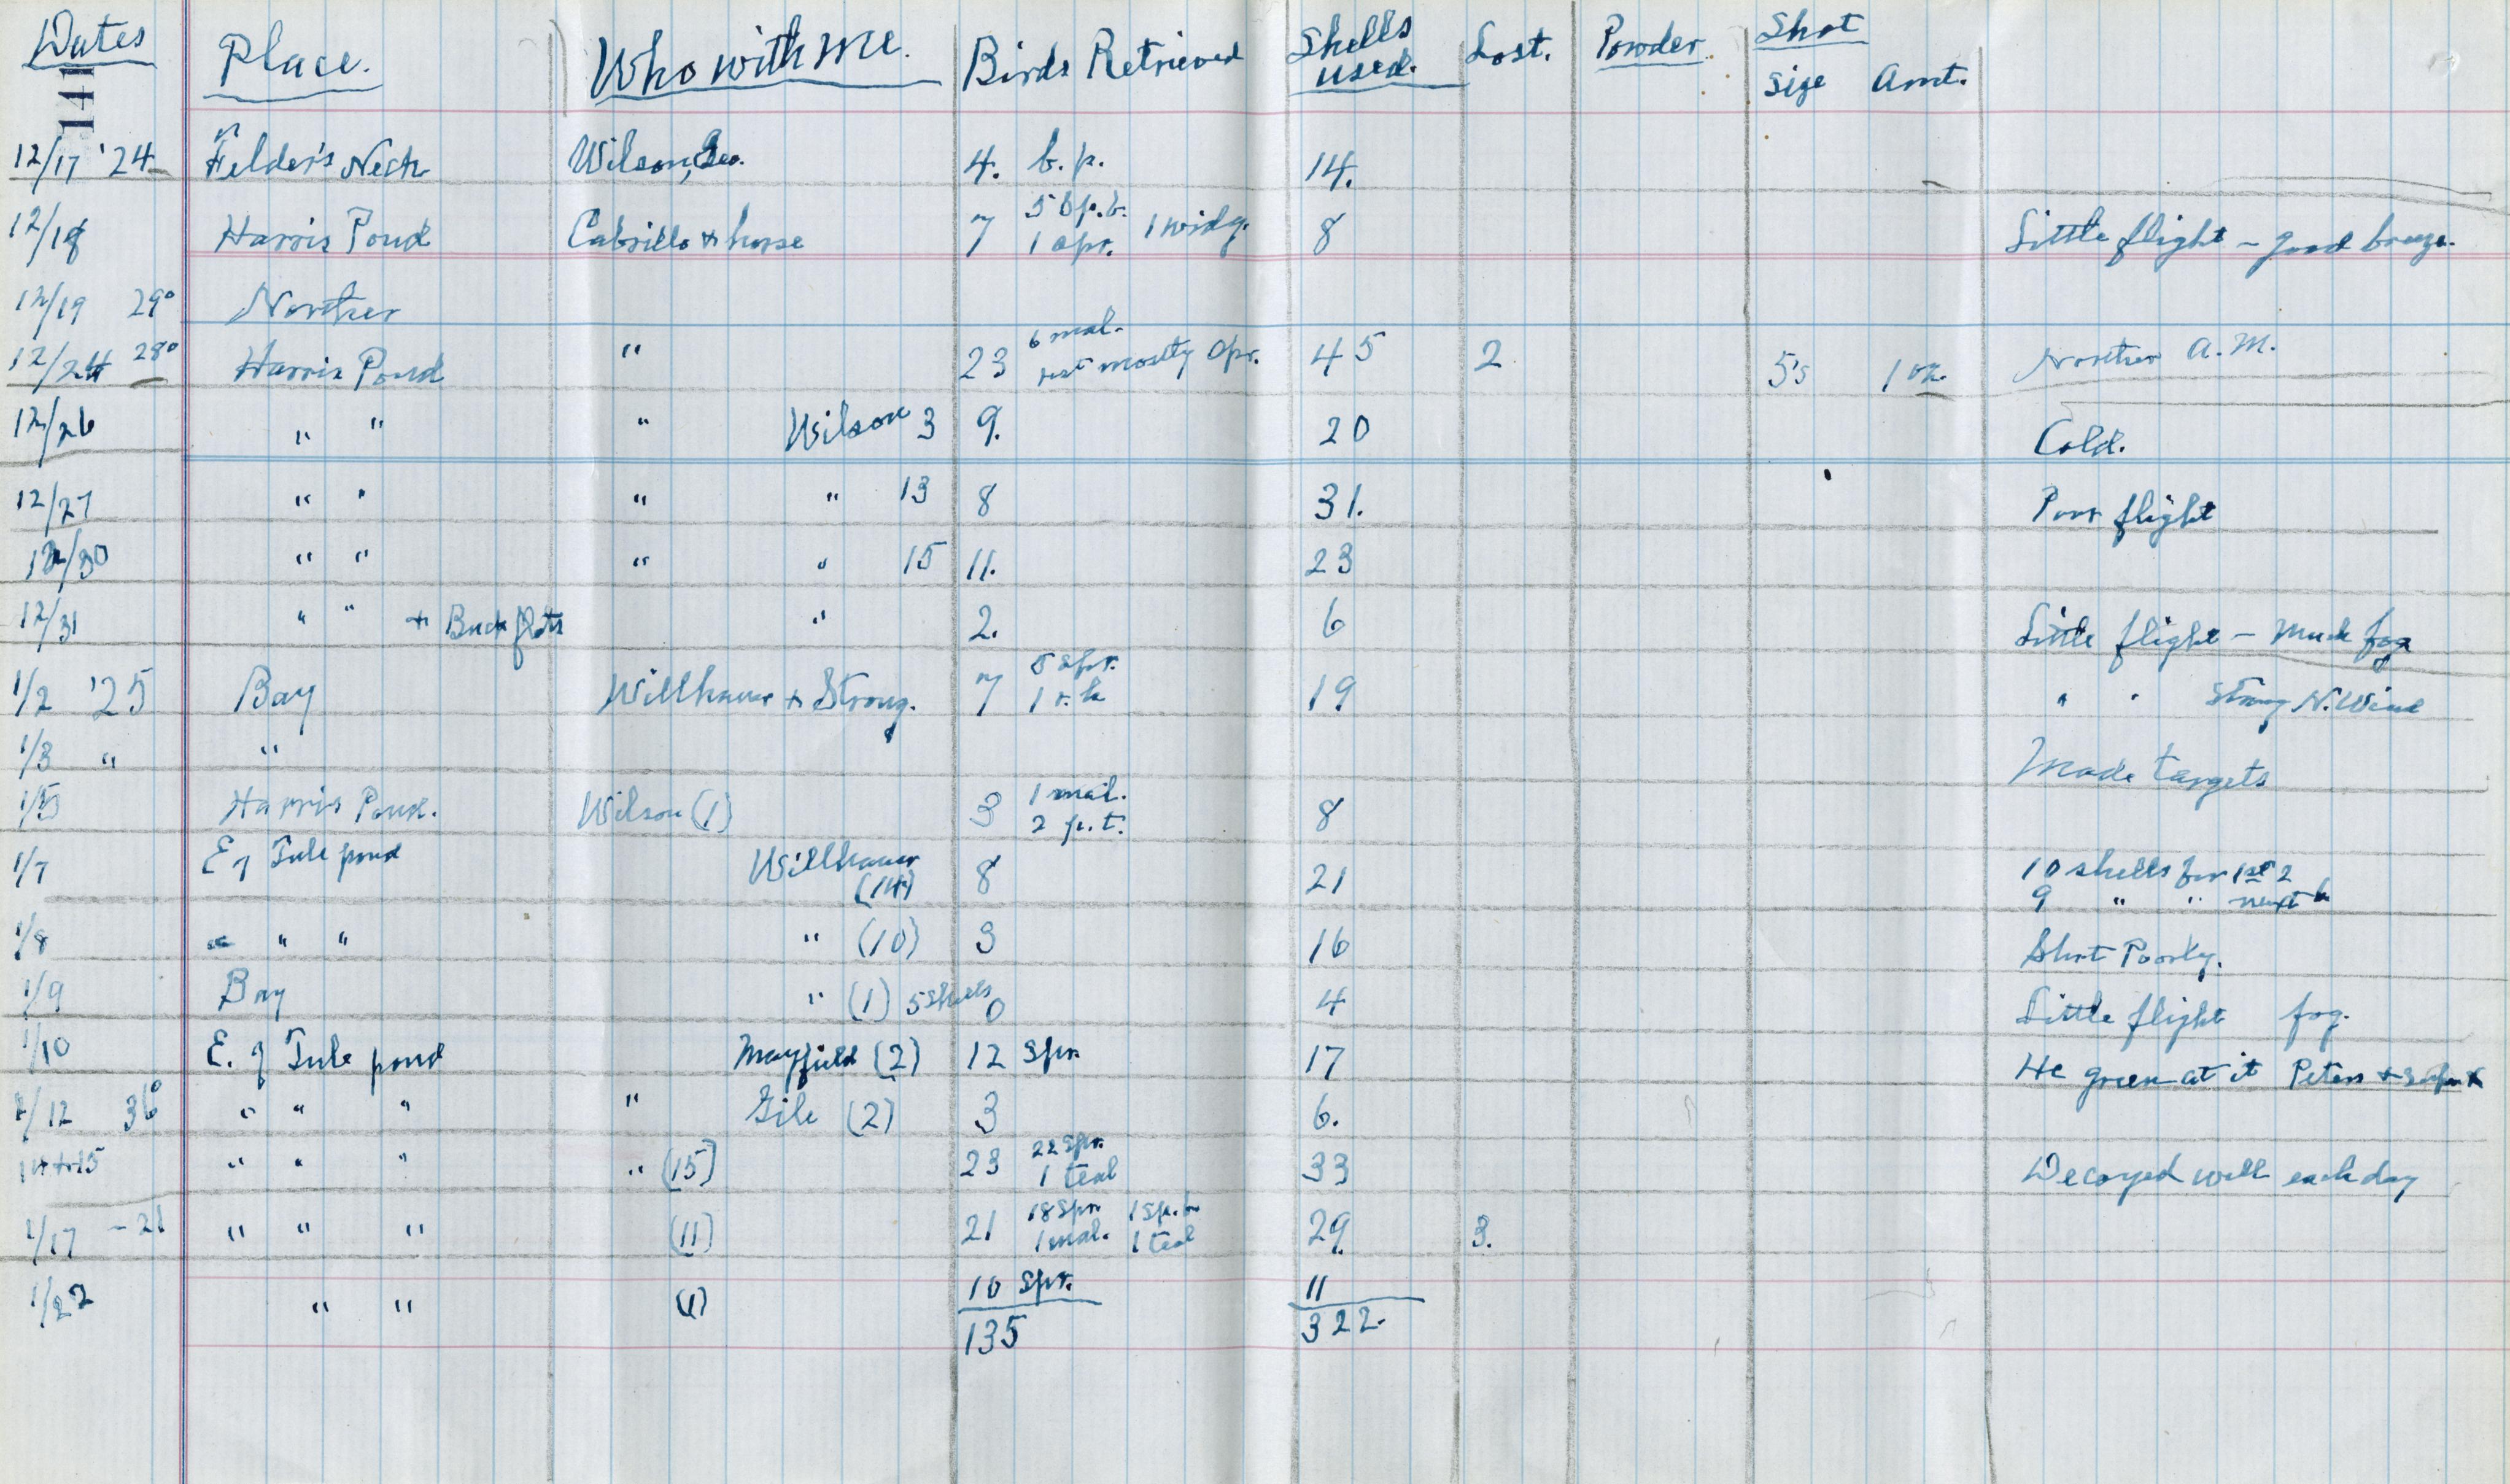 Dates Place. Who with me. Birds Retrieved Shells used. Lost. Powder Shot
Size Amt.
141
12/17 '24 Felder's Neck Wilson, Geo. 4. b.p. 14.
12/18 Harris Pond Cabrillo + horse 7 1 spr. 1 widg. 8 Little flight - good breeze.
12/19 29° Norther
12/24 28° Harris Pond " 23 6 mal. rest mostly spr. 45 2 5's 1 oz. Norther A.M.
12/26 " " " Wilson 3 9. 20 Cold.
12/27 " " " " 13 8 31. Poor flight
12/30 " " " " 15 11. 23
12/31 " " + Buck flats " 2. 6 Little flight - Much fog
1/2 '25 Bay Willhauer + Strong. 7 5 spr. 1 r.h 19 " " Strong N. Wind
1/3 " " Made targets
1/5 Harris Pond. Wilson (1) 3 1 mal. 2 p.t. 8
1/7 E of Tule pond Willhauer (14) 8 21 10 shells for 1st 2
9 " " next 6
1/8 " " " " (10) 3 16 Shot Poorly.
1/9 Bay " (1) 5 shells 0 4 Little flight fog.
1/10 E. of Tule pond Mayfield (2) 12 spr. 17 He green at it Peters
1/12 36° " " " " Gile (2) 3 6.
14+15 " " " " (15) 23 22 spr. 1 teal 33 Decoyed well each day
1/17 - 21 " " " (11) 21 18 spr. 1 sp.b. 1 mal. 1 teal 29. 3.
1/22 " " (1) 10 spr. 11
135 322.